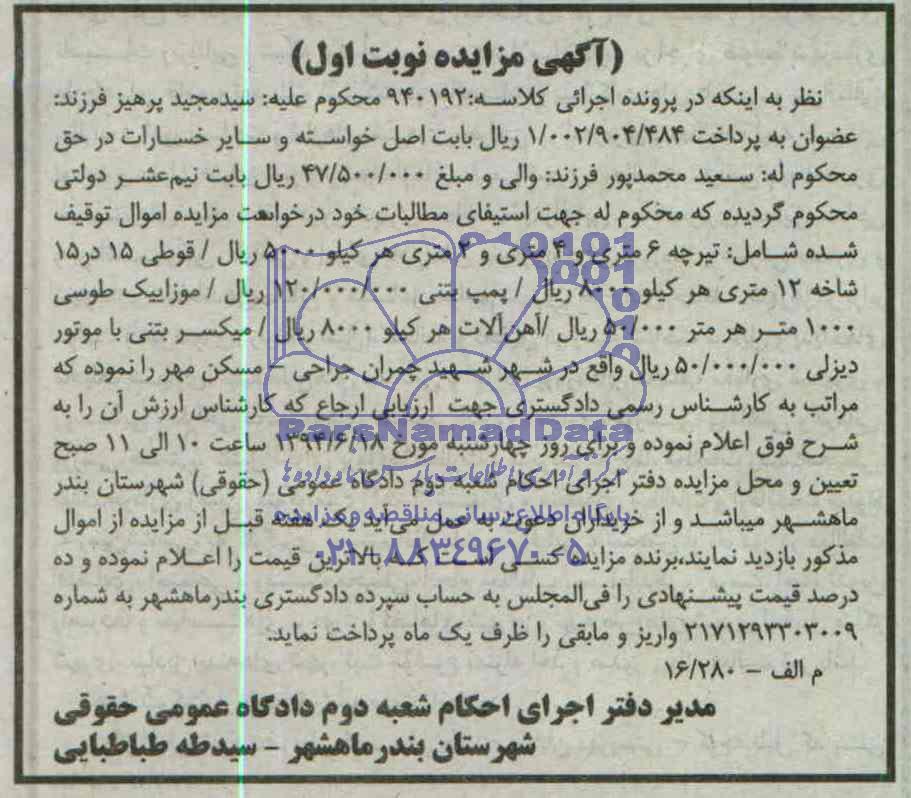 (آگهی مزایده نوبت اول)
نظر به اینکه در پرونده اجرائی کلاسه:۹۴۰۱۹۲ محکوم علیه: سیدمجید پرهیز فرزند:
عضوان به پرداخت ۱/۰۰۲/۹۰۴/۴۸۴ ریال بابت اصل خواسته و سایر خسارات در حق
محکوم له: سعید محمدپور فرزند: والی و مبلغ ۴۷/۵۰۰/۰۰۰ ریال بابت نیم‌عشر دولتی
محکوم گردیده که محکوم له جهت استیفای مطالبات خود درخواست مزایده اموال توقیف
شده شامل: تیرچه ۶ متری و ۴ متری و ۲ متری هر کیلو ۵۰۰۰ ریال / قوطی ۱۵ در۱۵
شاخه ۱۲ متری هر کیلو ۸۰۰۰ ریال / پمپ بتنی ۱۲۰/۰۰۰/۰۰۰ ریال / موزاییک طوسی
۱۰۰۰ متر هر متر ۵۰/۰۰۰ ریال /آهن‌آلات هر کیلو ۸۰۰۰ ریال / میکسر بتنی با موتور
دیزلی ۵۰/۰۰۰/۰۰۰ ریال واقع در شهر شهید چمران جراحی – مسکن مهر را نموده که
مراتب به کارشناس رسمی دادگستری جهت ارزیابی ارجاع که کارشناس ارزش آن را به
شرح فوق اعلام نموده و برای روز چهارشنبه مورخ ۱۳۹۴/۶/۱۸ ساعت ۱۰ الی ۱۱ صبح
تعیین و محل مزایده دفتر اجرای احکام شعبه دوم دادگاه عمومی (حقوقی) شهرستان بندر
ماهشهر میباشد و از خریداران دعوت به عمل می‌آید یک هفته قبل از مزایده از اموال
مذکور بازدید نمایند،برنده مزایده کسی است که بالاترین قیمت را اعلام نموده و ده
درصد قیمت پیشنهادی را فی‌المجلس به حساب سپرده دادگستری بندرماهشهر به شماره
۲۱۷۱۲۹۳۳۰۳۰۰۹ واریز و مابقی را ظرف یک ماه پرداخت نماید.
م الف – ۱۶/۲۸۰
مدیر دفتر اجرای احکام شعبه دوم دادگاه عمومی حقوقی
شهرستان بندرماهشهر – سیدطه طباطبایی
ParsNamadData
پایگاه اطلاع رسانی مناقصه و مزایده
۰۲۱-۸۸۳۴۹۶۷۰-۵